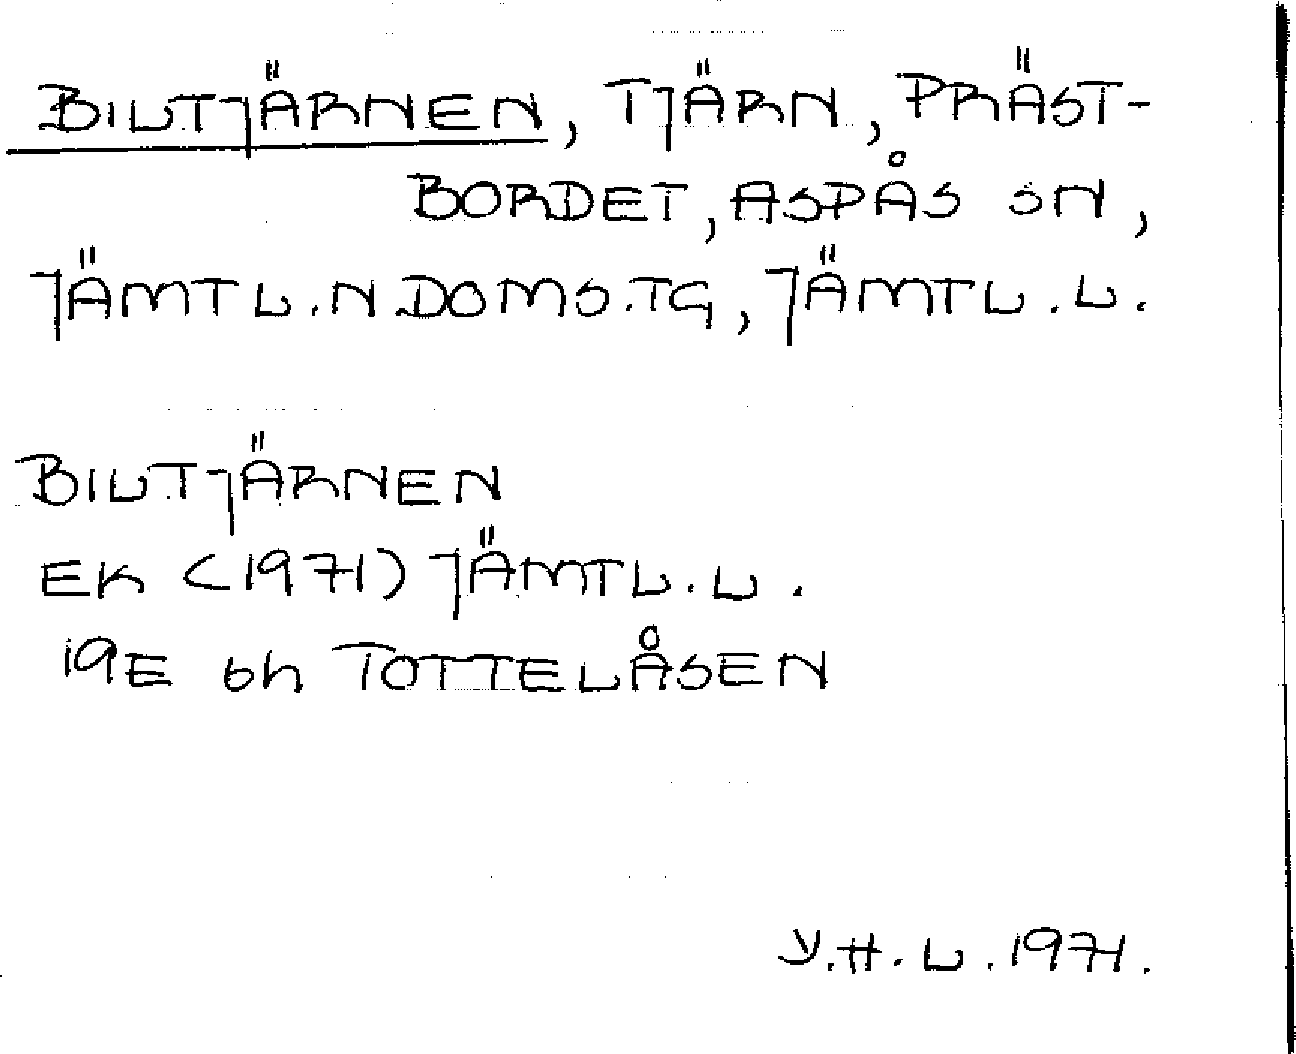 BILTJÄRNEN, TJÄRN, PRÄST-
BORDET, ASPÅS SN,
JÄMTL.N.DOMS.TG, JÄMTL.L.
BILTJÄRNEN
EK (1971) JÄMTL.L.
19E 6h TOTTELÅSEN
Y.H.L. 1971.